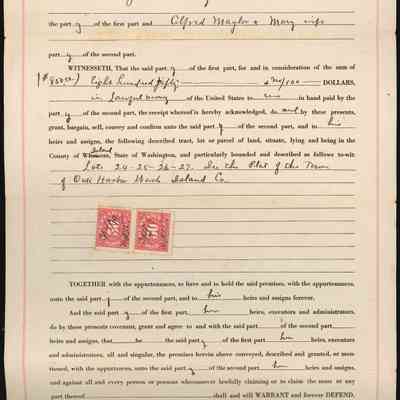 the part y of the first part and Alfred Maylor & Mary wife
part y of the second part.
WITNESSETH, That the said part y of the first part, for and in consideration of the sum of
($850.00) Eight hundred fifty & no/100 DOLLARS,
in lawful money of the United States to in hand paid by the
part y of the second part, the receipt whereof is hereby acknowledged, do and by these presents,
grant, bargain, sell, convey and confirm unto the said part y of the second part, and to his
heirs and assigns, the following described tract, lot or parcel of land, situate, lying and being in the
Island
County of Whatcom, State of Washington, and particularly bounded and described as follows to-wit
Lots 24-25-26-27. In the Plat of the Town
of Oak Harbor Wash Island Co
50 50
TOGETHER with the appurtenances, to have and to hold the said premises, with the appurtenances,
unto the said part y of the second part, and to his heirs and assigns forever.
And the said part y of the first part, heirs, executors and administrators,
do by these presents covenant, grant and agree to and with the said part of the second part,
heirs and assigns, that the said part y of the first part heirs, executors
and administrators, all and singular, the premises herein above conveyed, described and granted, or men-
tioned, with the appurtenances, unto the said part y of the second part heirs and assigns,
and against all and every person or persons whomsoever lawfully claiming or to claim the same or any
part thereof shall and will WARRANT and forever DEFEND.